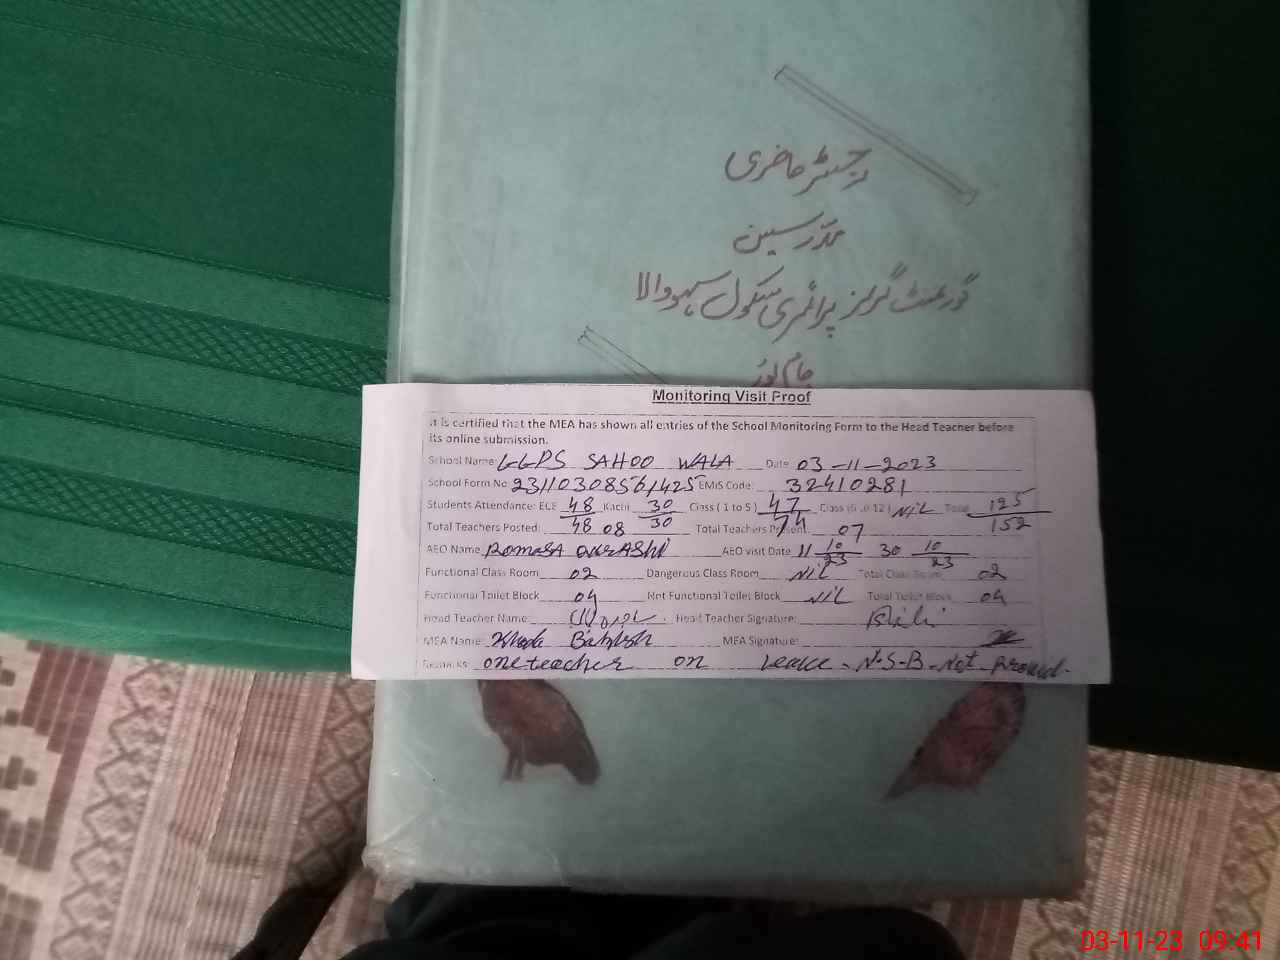 رجسٹر حاضری
مدرسین
گورنمنٹ گرلز پرائمری سکول سہووالا
جام پور
Monitoring Visit Proof
It is certified that the MEA has shown all entries of the School Monitoring Form to the Head Teacher before
its online submission.
School Name: GGPS SAHOO WALA Date 03-11-2023
School Form No 23110308561425 EMIS Code: 32410281
Students Attendance: ECE 48/48 Kachi 30/30 Class (1 to 5) 47/74 Class (6 to 12) NIL Total 125/152
Total Teachers Posted: 08 Total Teachers Present: 07
AEO Name ROMASA QURASHI AEO visit Date 11 10/23 30 10/23
Functional Class Room 02 Dangerous Class Room NIL Total Class Room 02
Functional Toilet Block 04 Not Functional Toilet Block NIL Total Toilet Block 04
Head Teacher Name: Head Teacher Signature:
MEA Name: Khuda Bakhsh MEA Signature:
Remarks one teacher on Leave - N-S-B-Not
03-11-23 09:41